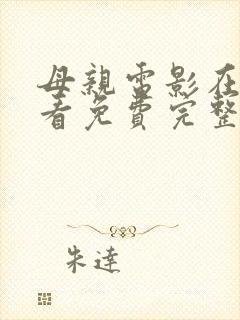 母親電影在
看免費完整
朱達